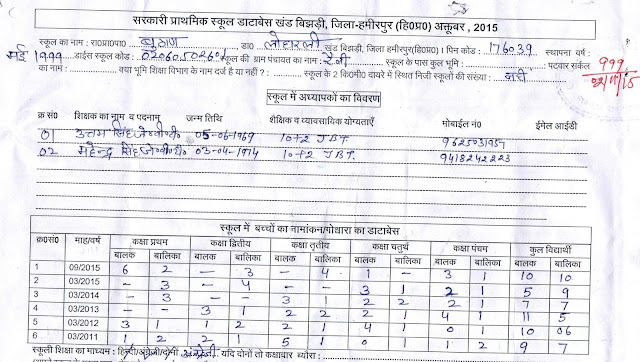 सरकारी प्राथमिक स्कूल डाटाबेस खंड बिझड़ी, जिला-हमीरपुर(हि0प्र0) अक्तूबर , 2015
स्कूल का नाम : रा0प्रा0पा0 बुठाण डा0 लोहारली खंड बिझड़ी, जिला हमीरपुर(हि0प्र0)। पिन कोड : 176039 स्थापना वर्ष :
मई 1999 डाईस स्कूल कोड : 02060502601 स्कूल की ग्राम पंचायत का नाम : रैली स्कूल के पास कुल भूमि : पटवार सर्कल
का नाम : क्या भूमि शिक्षा विभाग के नाम दर्ज है या नही? : स्कूल के 2 कि0मी0 दायरे में स्थित निजी स्कूलों की संख्या :
999
स्कूल में अध्यापकों का विवरण
क्र सं0 शिक्षक का नाम व पदनाम जन्म तिथि शैक्षिक व व्यावसायिक योग्यताएँ मोबाईल नं0 ईमेल आईडी
01 उत्तम सिंह जे0बी0टी0 05-06-1969 10+2 JBT
02 महेन्द्र सिंह जे0बी0टी0 03-04-1974 10+2 JBT. 9418242223
स्कूल में बच्चों का नामांकन/पोधारा का डाटाबेस
क्र0सं0 माह/वर्ष कक्षा प्रथम कक्षा द्वितीय कक्षा तृतीय कक्षा चतुर्थ कक्षा पंचम कुल विद्यार्थी
बालक बालिका बालक बालिका बालक बालिका बालक बालिका बालक बालिका बालक बालिका
1 09/2015 6 2 — 3 — 4 1 — 3 1 10 10
2 03/2015 — 3 — 4 — — 3 1 2 1 5 9
3 03/2014 — 3 — — 3 1 2 2 2 1 7 7
4 03/2013 — — 3 1 2 2 2 1 4 1 11 5
5 03/2012 3 1 1 2 2 1 4 1 0 1 10 06
6 03/2011 1 2 2 1 5 1 0 1 1 2 9 7
स्कूली शिक्षा का माध्यम : हिन्दी/अंग्रेजी/दोनों अंग्रेजी यदि दोनों तो कक्षावार ब्यौरा :